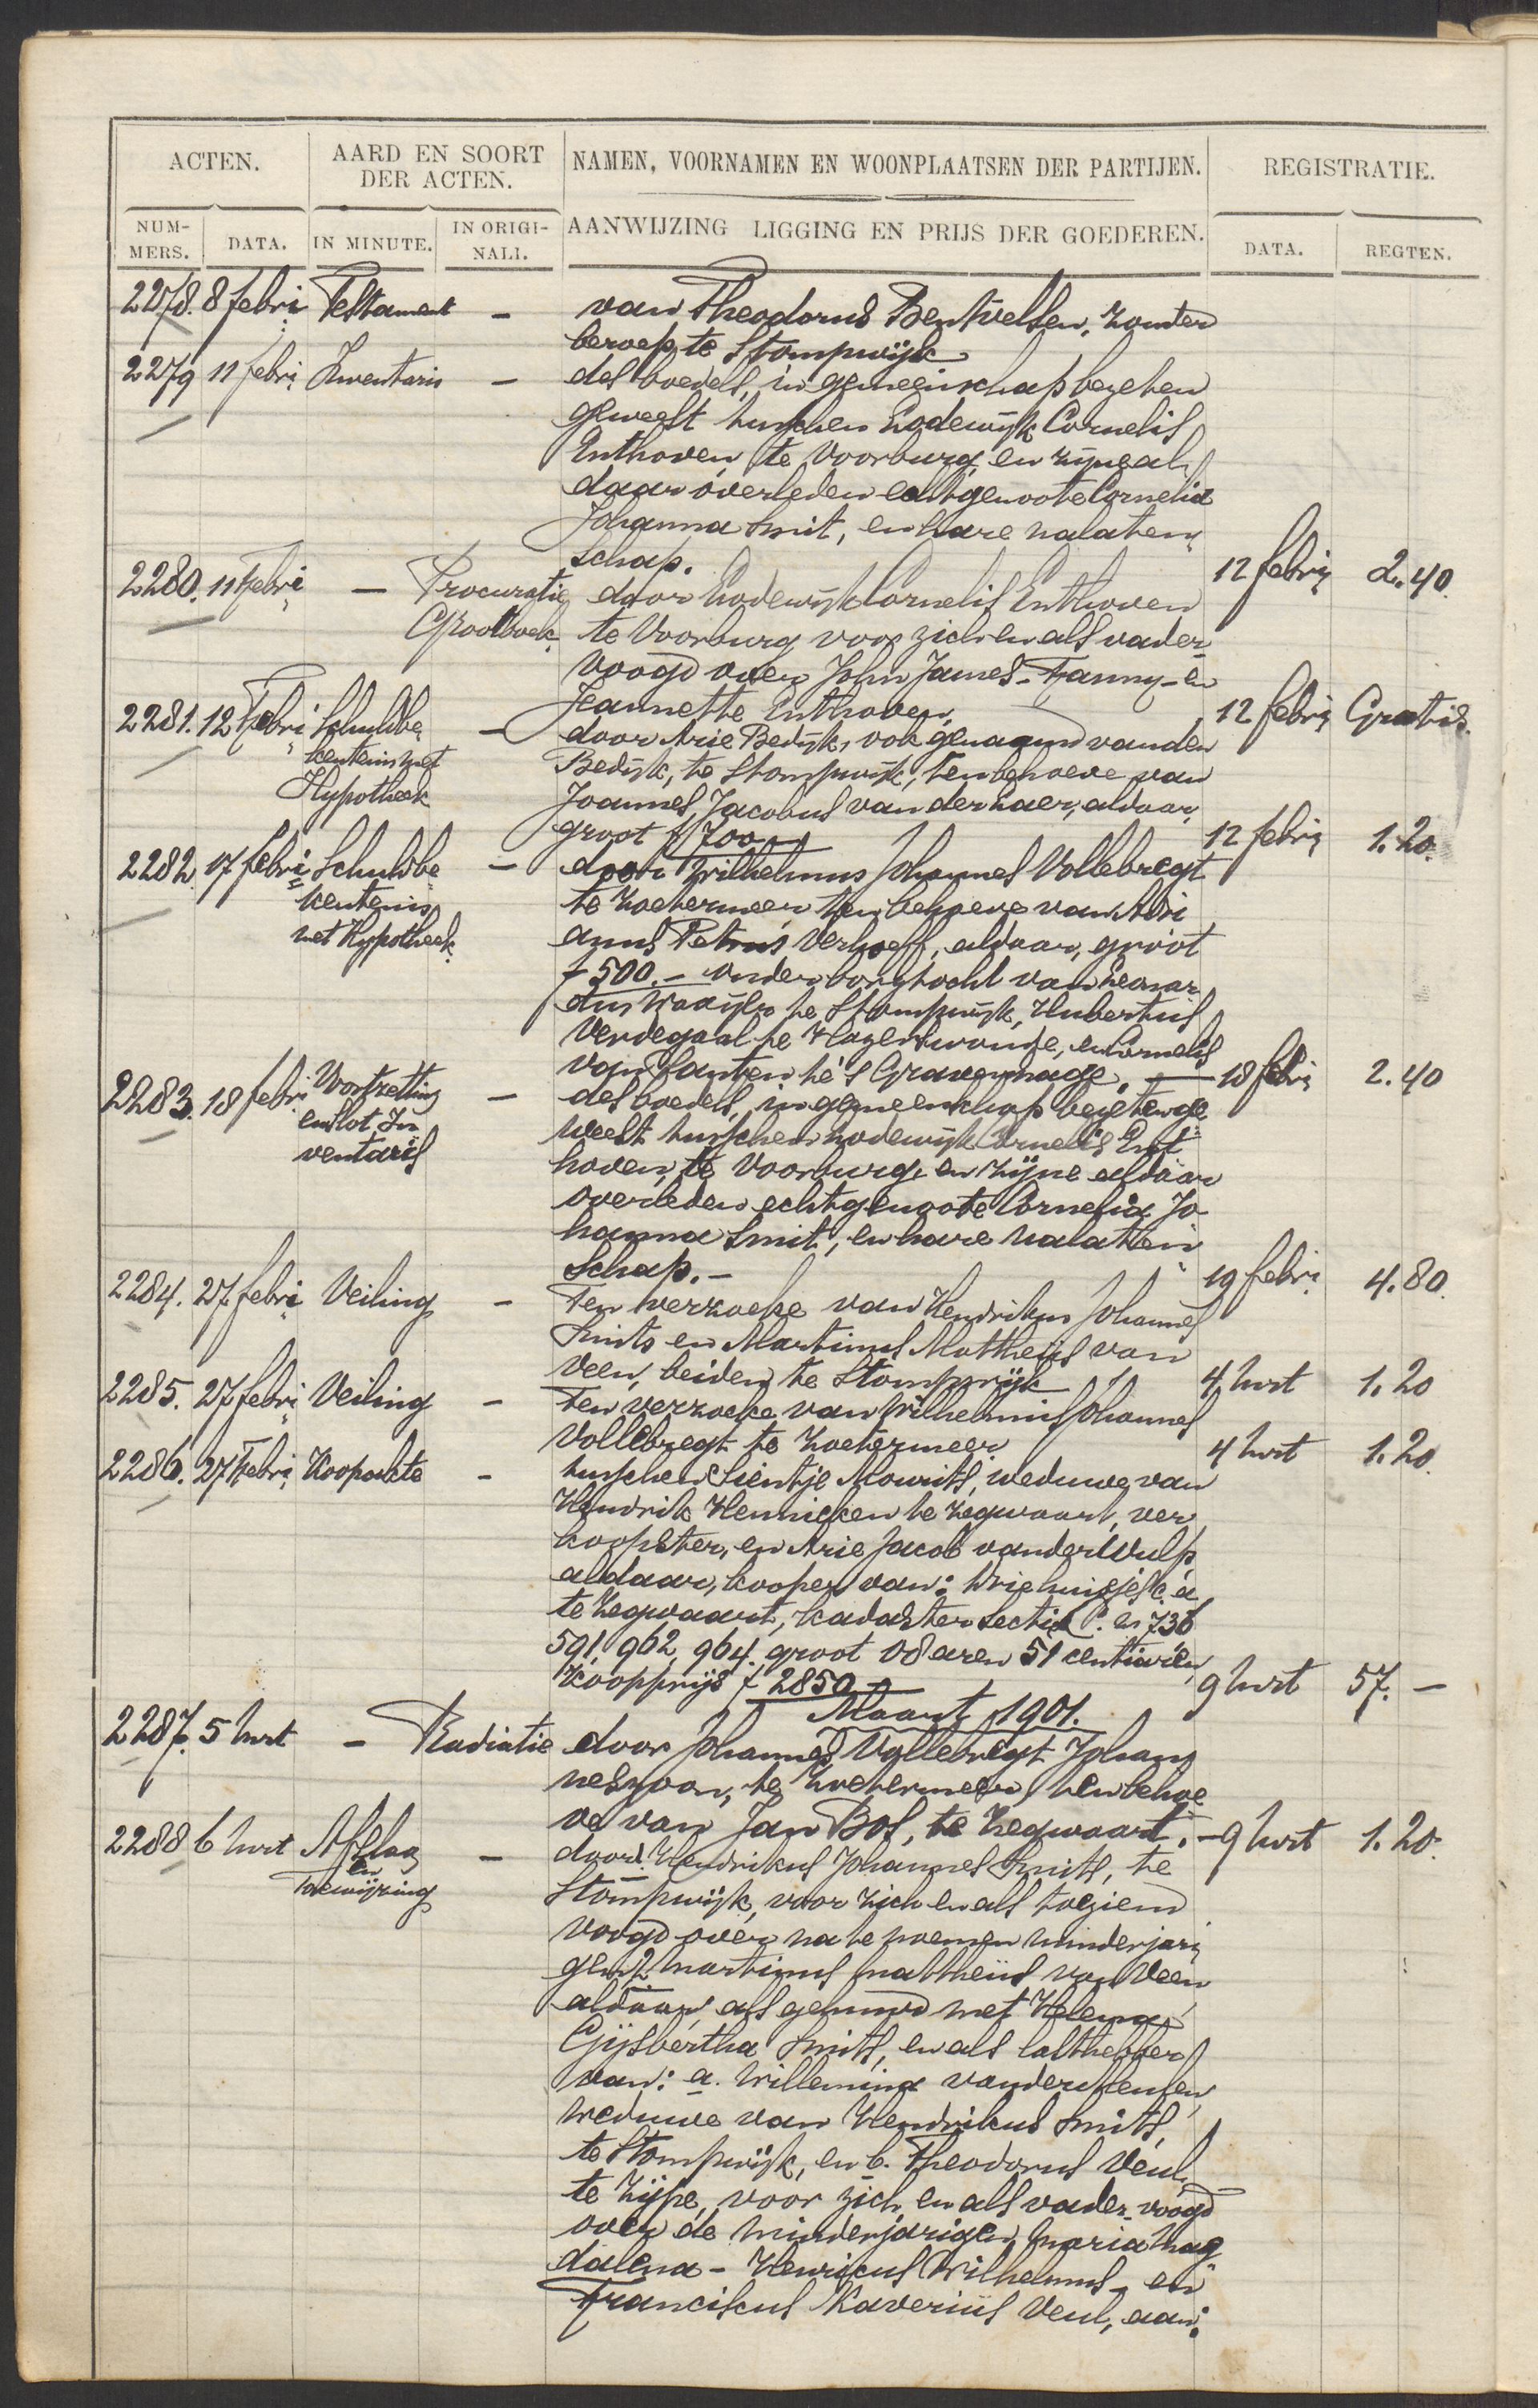 ACTEN. AARD EN SOORT DER ACTEN. NAMEN, VOORNAMEN EN WOONPLAATSEN DER PARTIJEN. REGISTRATIE.
NUM-MERS. DATA. IN MINUTE. IN ORIGI-NALI. AANWIJZING LIGGING EN PRIJS DER GOEDEREN. DATA. REGTEN.
2278. 8 febri Testament - van Theodorus Bentvelsen, zonder
beroep te Stompwijk
2279 11 febri Inventaris - des boedels, in gemeenschap bezeten
geweest tusschen Lodewijk Cornelis
Enthoven, te Voorburg en zijne al
daar overleden echtgenoote Cornelia
Johanna Smit, en hare nalaten„
schap. 12 febri 2.40
2280. 11 febri - Procuratie door Lodewijk Cornelis Enthoven
Grootboek. te Voorburg voor zich en als vader-
voogd over John James - Fanny - en
Jeannette Enthoven. 12 febri Gratis.
2281. 12 febri Schuldbe„ - door Arie Bedijk, ook genaamd van den
kentenis met Bedijk, te Stompwijk, ten behoeve van
Hypotheek Joannes Jacobus van der Haer, aldaar,
groot f 700.- 12 febri 1.20.
2282. 17 febri Schuldbe - door Wilhelmus Johannes Vollebregt
kentenis te Zoetermeer, ten behoeve van Adri
met Hypotheek. anus Petrus Verhoeff, aldaar, groot
f 500.- onder borgtocht van Leonar
dus Waaijer te Stompwijk, Hubertus
Verdegaal te Hazerswoude, en Cornelis
van Santen te 's Gravenhage. - 18 febri 2.40
2283. 18 febri Voortzetting - des boedels, in gemeenschap bezeten ge
en Slot In weest tusschen Lodewijk Cornelis Ent
ventaris hoven, te Voorburg, en zijne aldaar
overleden echtgenoote Cornelia Jo
hanna Smit, en hare nalaten
schap.- 19 febri 4.80.
2284. 27 febri Veiling - Ten verzoeke van Hendrikus Johannes
Smits en Martinus Mattheüs van
Veen, beiden te Stompwijk 4 Mrt 1.20
2285. 27 febri Veiling - Ten verzoeke van Wilhelmus Johannes
Vollebregt te Zoetermeer 4 Mrt 1.20.
2286. 27 febri Koopakte - tusschen Sientje Mourits, weduwe van
Hendrik Hennieken te Zegwaart, ver
koopster, en Arie Jacob van der Wulp
aldaar, kooper van: Drie huisjes c.a.
te Zegwaart, kadaster Sectie C. en 736
591 962, 964. groot 08 aren 51 centiaren,
Koopprijs f 2850.- 9 Mrt 57.-
Maart 1901.
2287. 5 Mrt - Radiatie door Johannes Vollebregt Johan
neszoon, te Zoetermeer, ten behoe
ve van Jan Bos, te Zegwaart. - 9 Mrt 1.20.
2288 6 Mrt Afslag - door 1. Hendrikus Johannes Smits, te
en Toewijzing Stompwijk, voor zich en als toeziend
voogd over na te noemen minderjari
gen, 2 Martinus Mattheüs van Veen,
aldaar, als gehuwd met Helena
Gijsbertha Smits, en als lasthebber
van: a. Willemina van der Meulen,
weduwe van Hendrikus Smits,
te Stompwijk, en b. Theodorus Veul,
te Zijpe, voor zich en als vader-voogd
over de minderjarigen Maria Mag
dalena - Henricus Wilhelmus - en
Franciscus Xaverius Veul, aan: